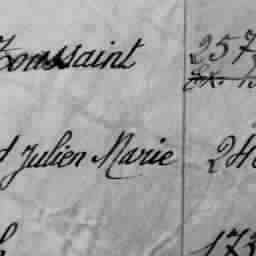 Toussaint 257
d Julien Marie 24
173